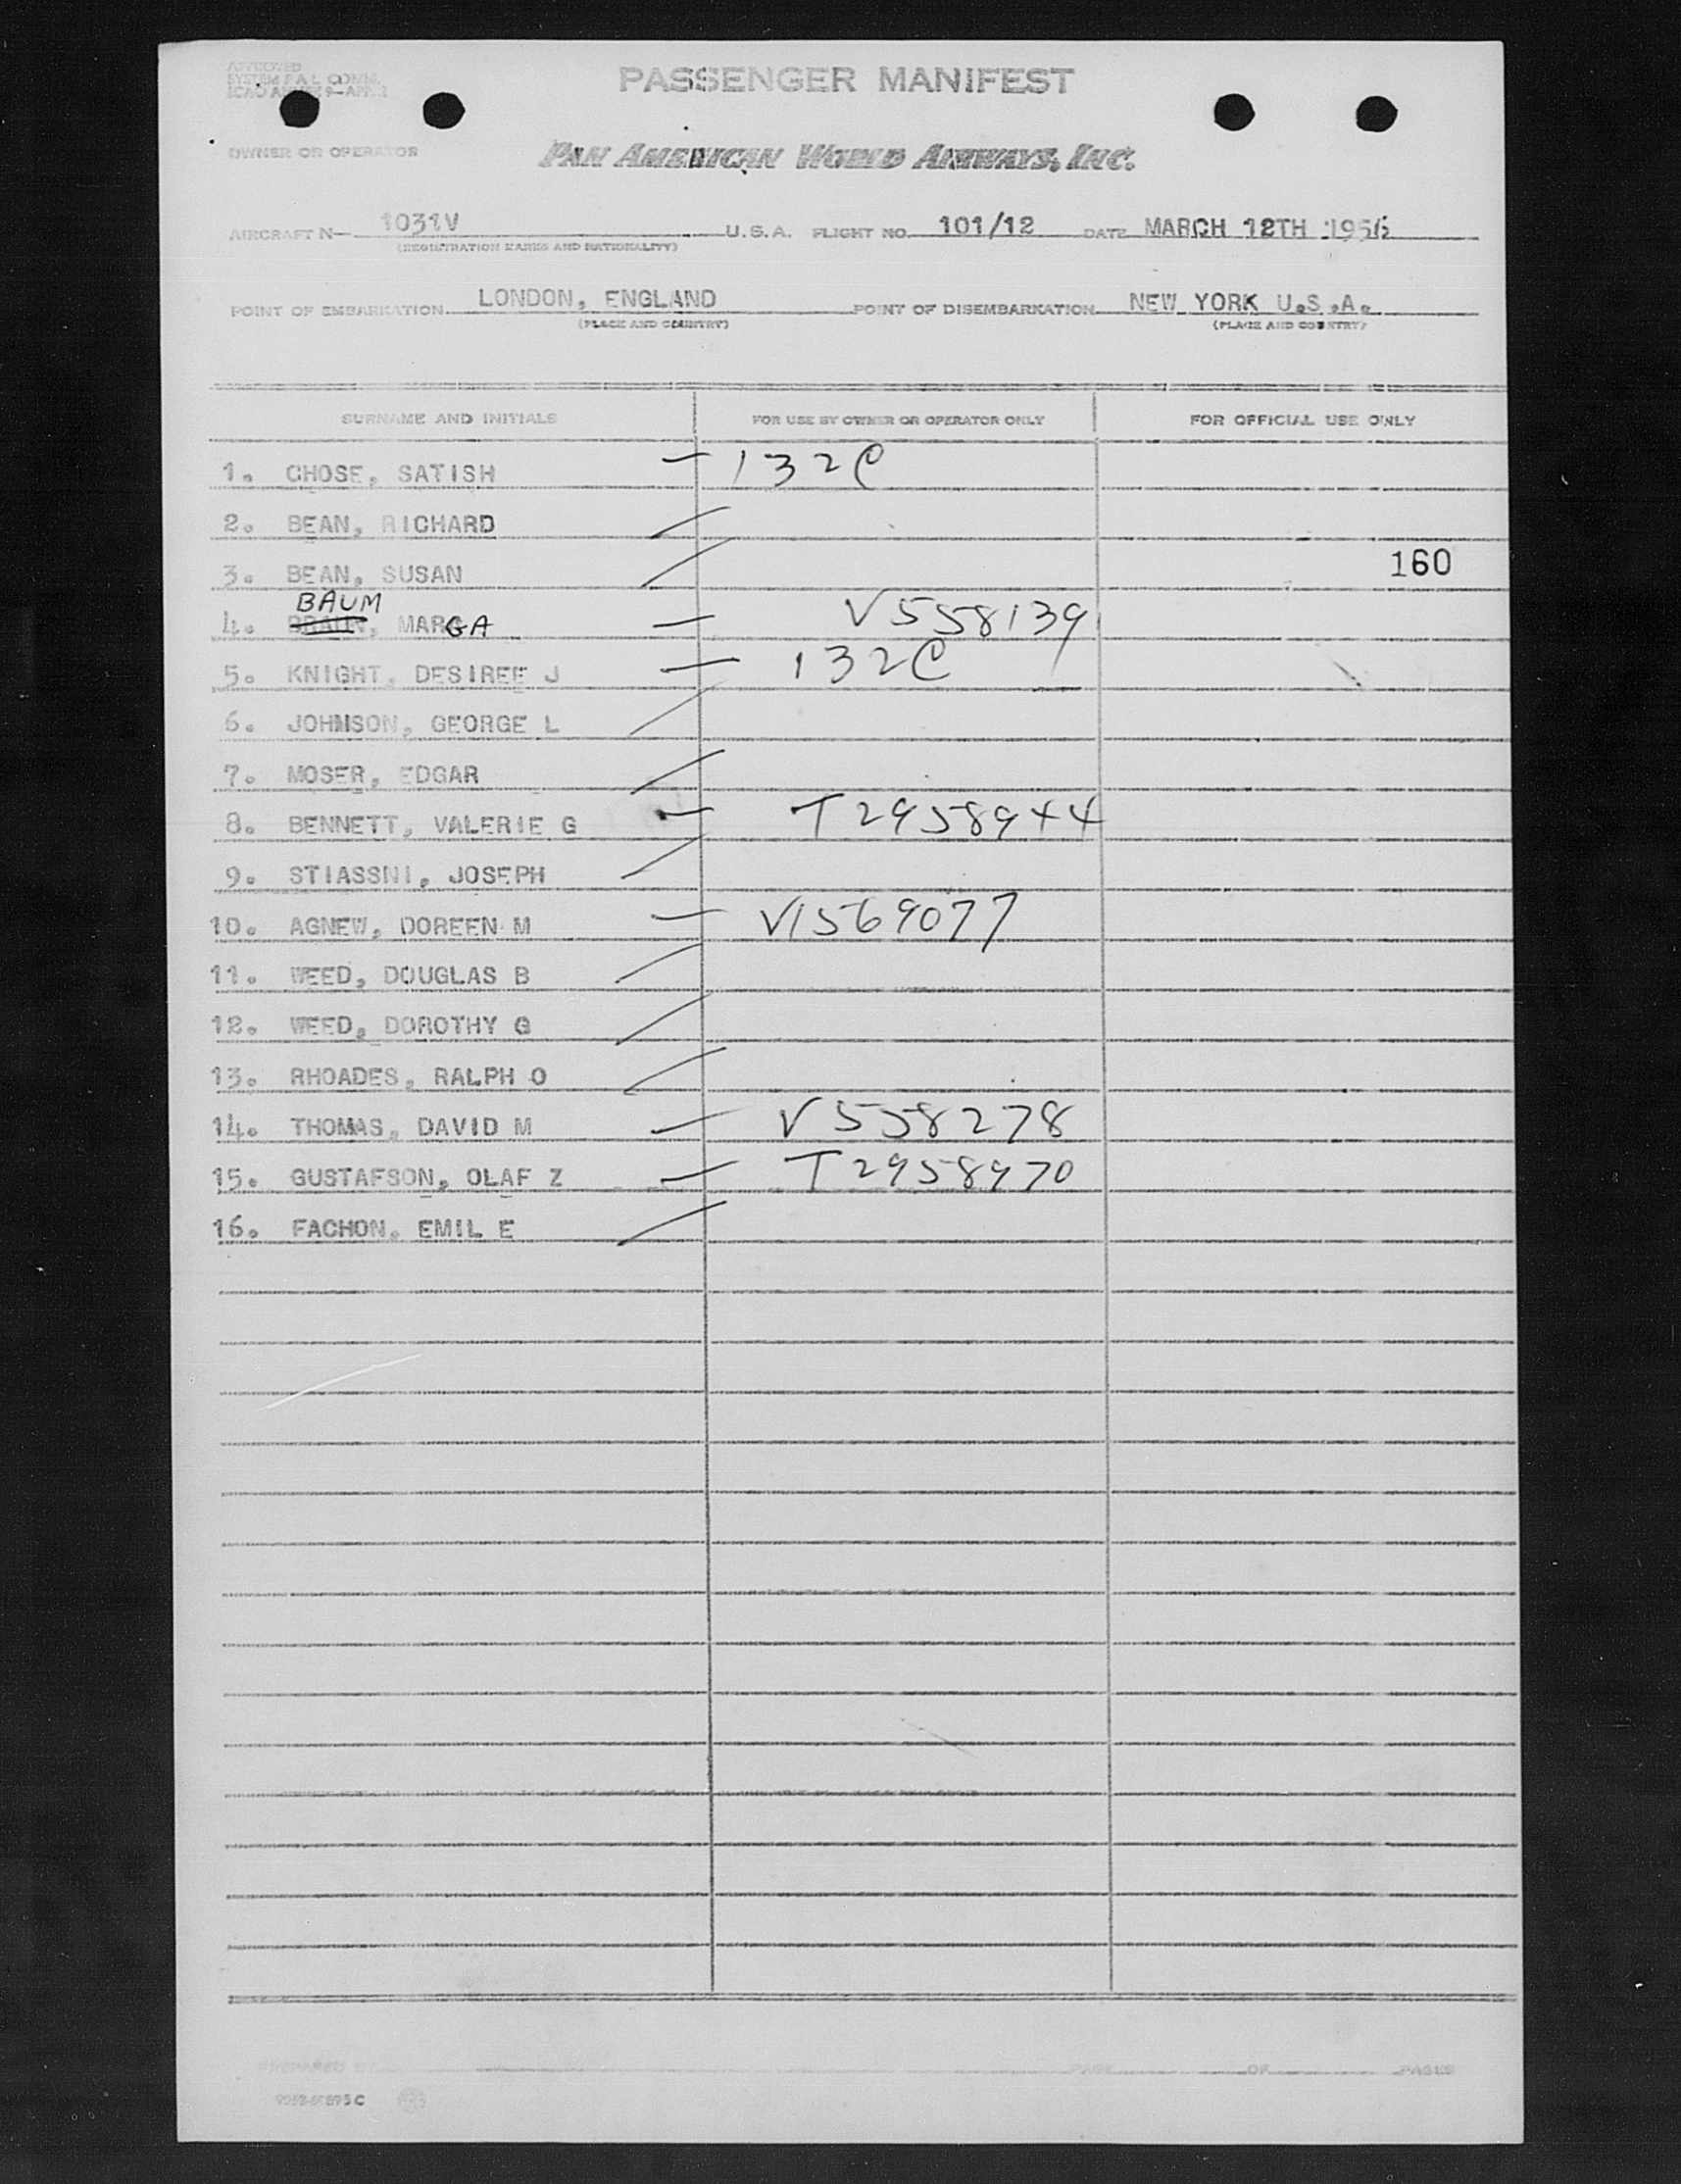 APPROVED
SYSTEM F A L COMM.
ICAO ANNEX 9—APP. 2
PASSENGER MANIFEST
OWNER OR OPERATOR
PAN AMERICAN WORLD AIRWAYS, INC.
AIRCRAFT N— 1031V U.S.A. FLIGHT NO. 101/12 DATE MARCH 12TH 1956
(REGISTRATION MARKS AND NATIONALITY)
POINT OF EMBARKATION LONDON, ENGLAND POINT OF DISEMBARKATION NEW YORK U.S.A.
(PLACE AND COUNTRY) (PLACE AND COUNTRY)
SURNAME AND INITIALS FOR USE BY OWNER OR OPERATOR ONLY FOR OFFICIAL USE ONLY
1. GHOSE, SATISH — 132C
2. BEAN, RICHARD
3. BEAN, SUSAN 160
BAUM
4. BRAUN, MARGA — V558139
5. KNIGHT, DESIREE J — 132C
6. JOHNSON, GEORGE L
7. MOSER, EDGAR
8. BENNETT, VALERIE G — T2958944
9. STIASSNI, JOSEPH
10. AGNEW, DOREEN M — V1569077
11. WEED, DOUGLAS B
12. WEED, DOROTHY G
13. RHOADES, RALPH O
14. THOMAS, DAVID M — V558278
15. GUSTAFSON, OLAF Z — T2958970
16. FACHON, EMIL E
PREPARED BY PAGE OF PAGES